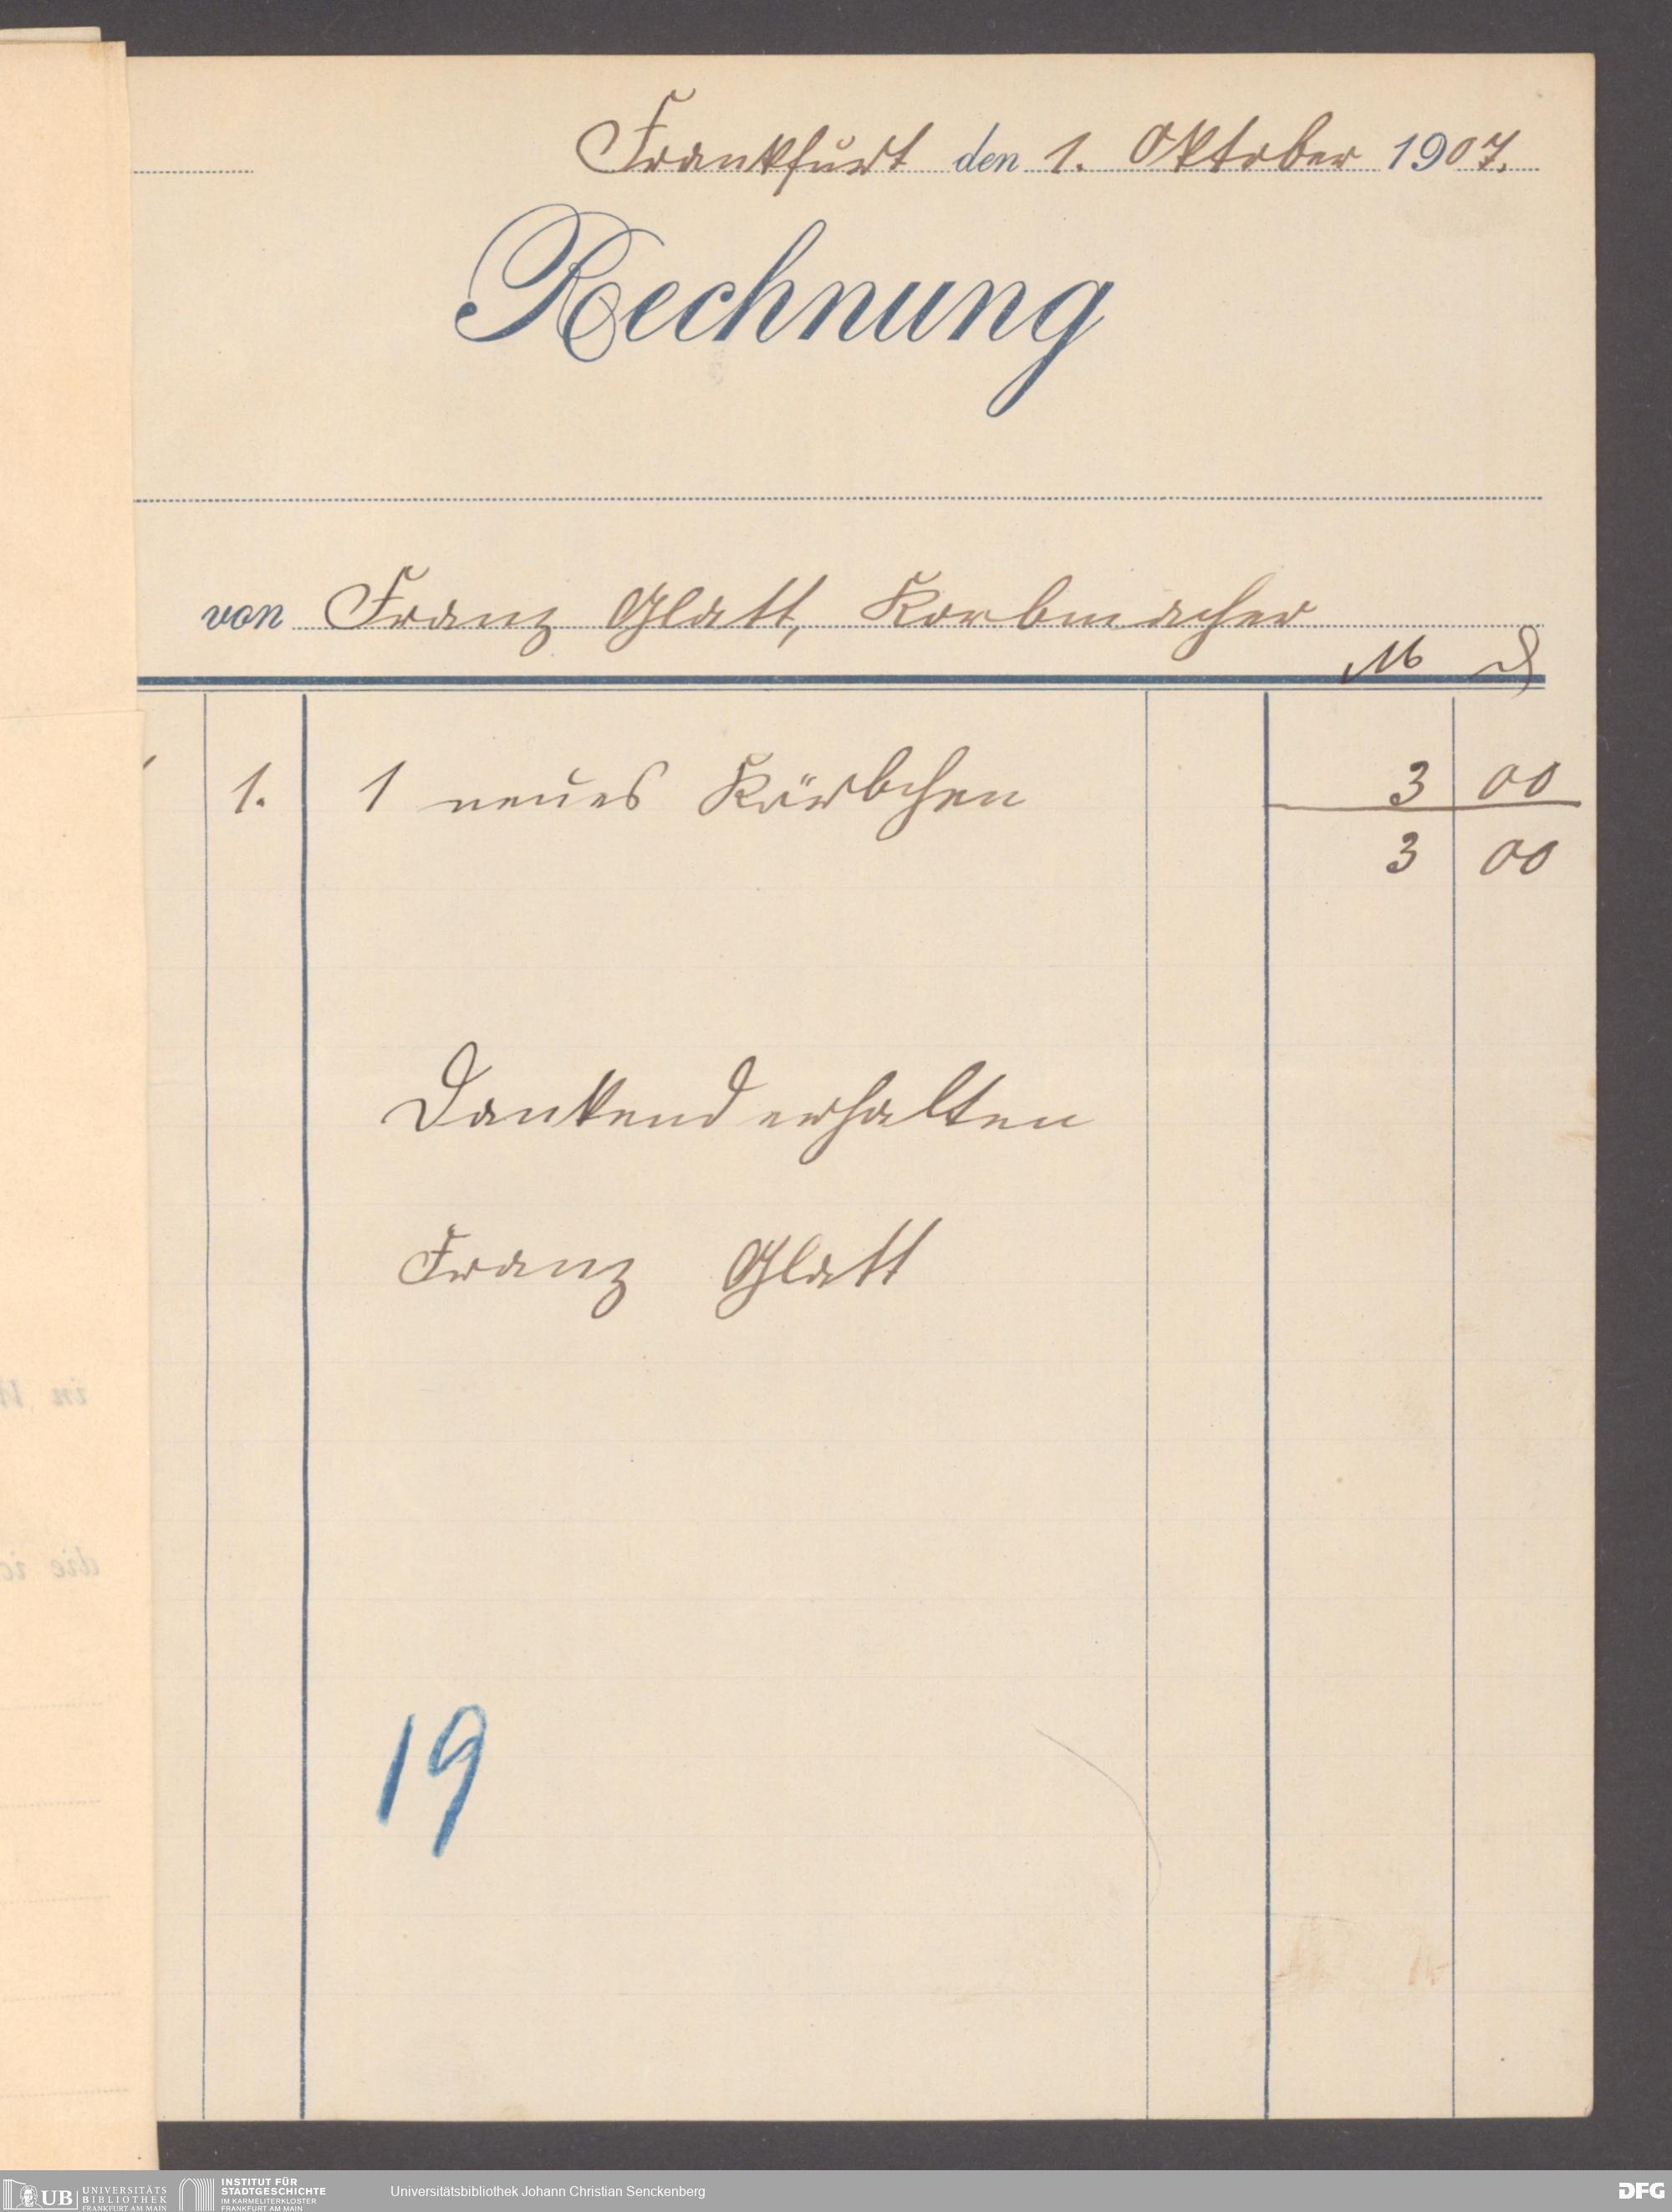 Frankfurt den 1. Oktober 1907.
Rechnung
von Franz Glatt, Korbmacher
M ₰
1. 1 neues Körbchen 3 00
3 00
Dankend erhalten
Franz Glatt
in
die
19
UB UNIVERSITÄTS BIBLIOTHEK FRANKFURT AM MAIN
INSTITUT FÜR STADTGESCHICHTE IM KARMELITERKLOSTER FRANKFURT AM MAIN
Universitätsbibliothek Johann Christian Senckenberg
DFG